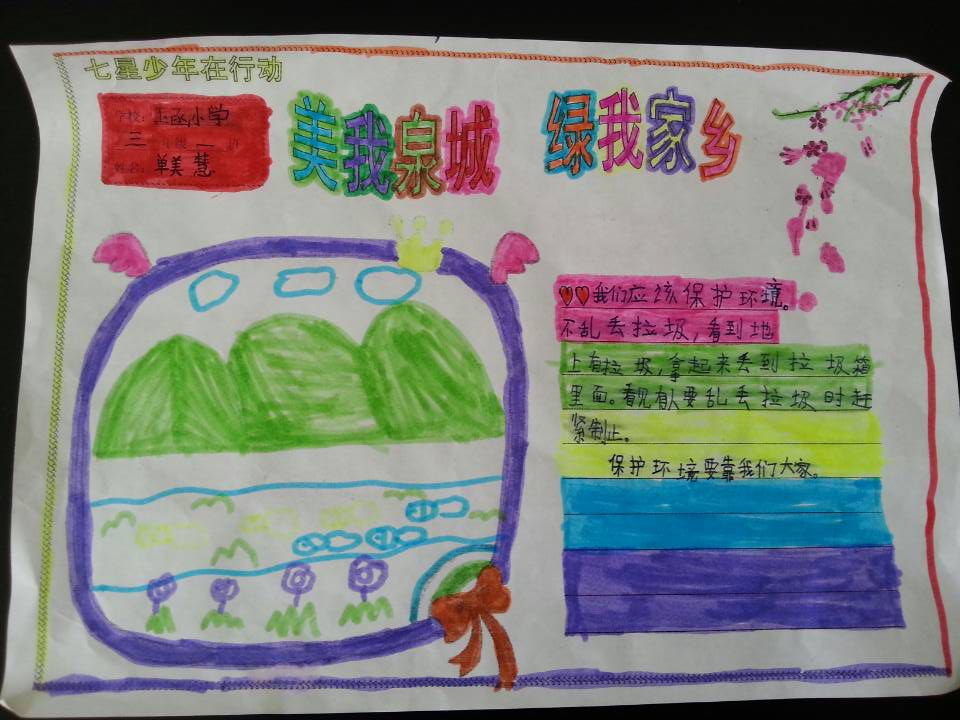 七星少年在行动
学校：玉函小学
三年级二班
姓名：单美慧
美我泉城 绿我家乡
我们应该保护环境。
不乱丢拉圾，看到地
上有拉圾，拿起来丢到拉圾箱
里面。看见有人要乱丢拉圾时赶
紧制止。
保护环境要靠我们大家。